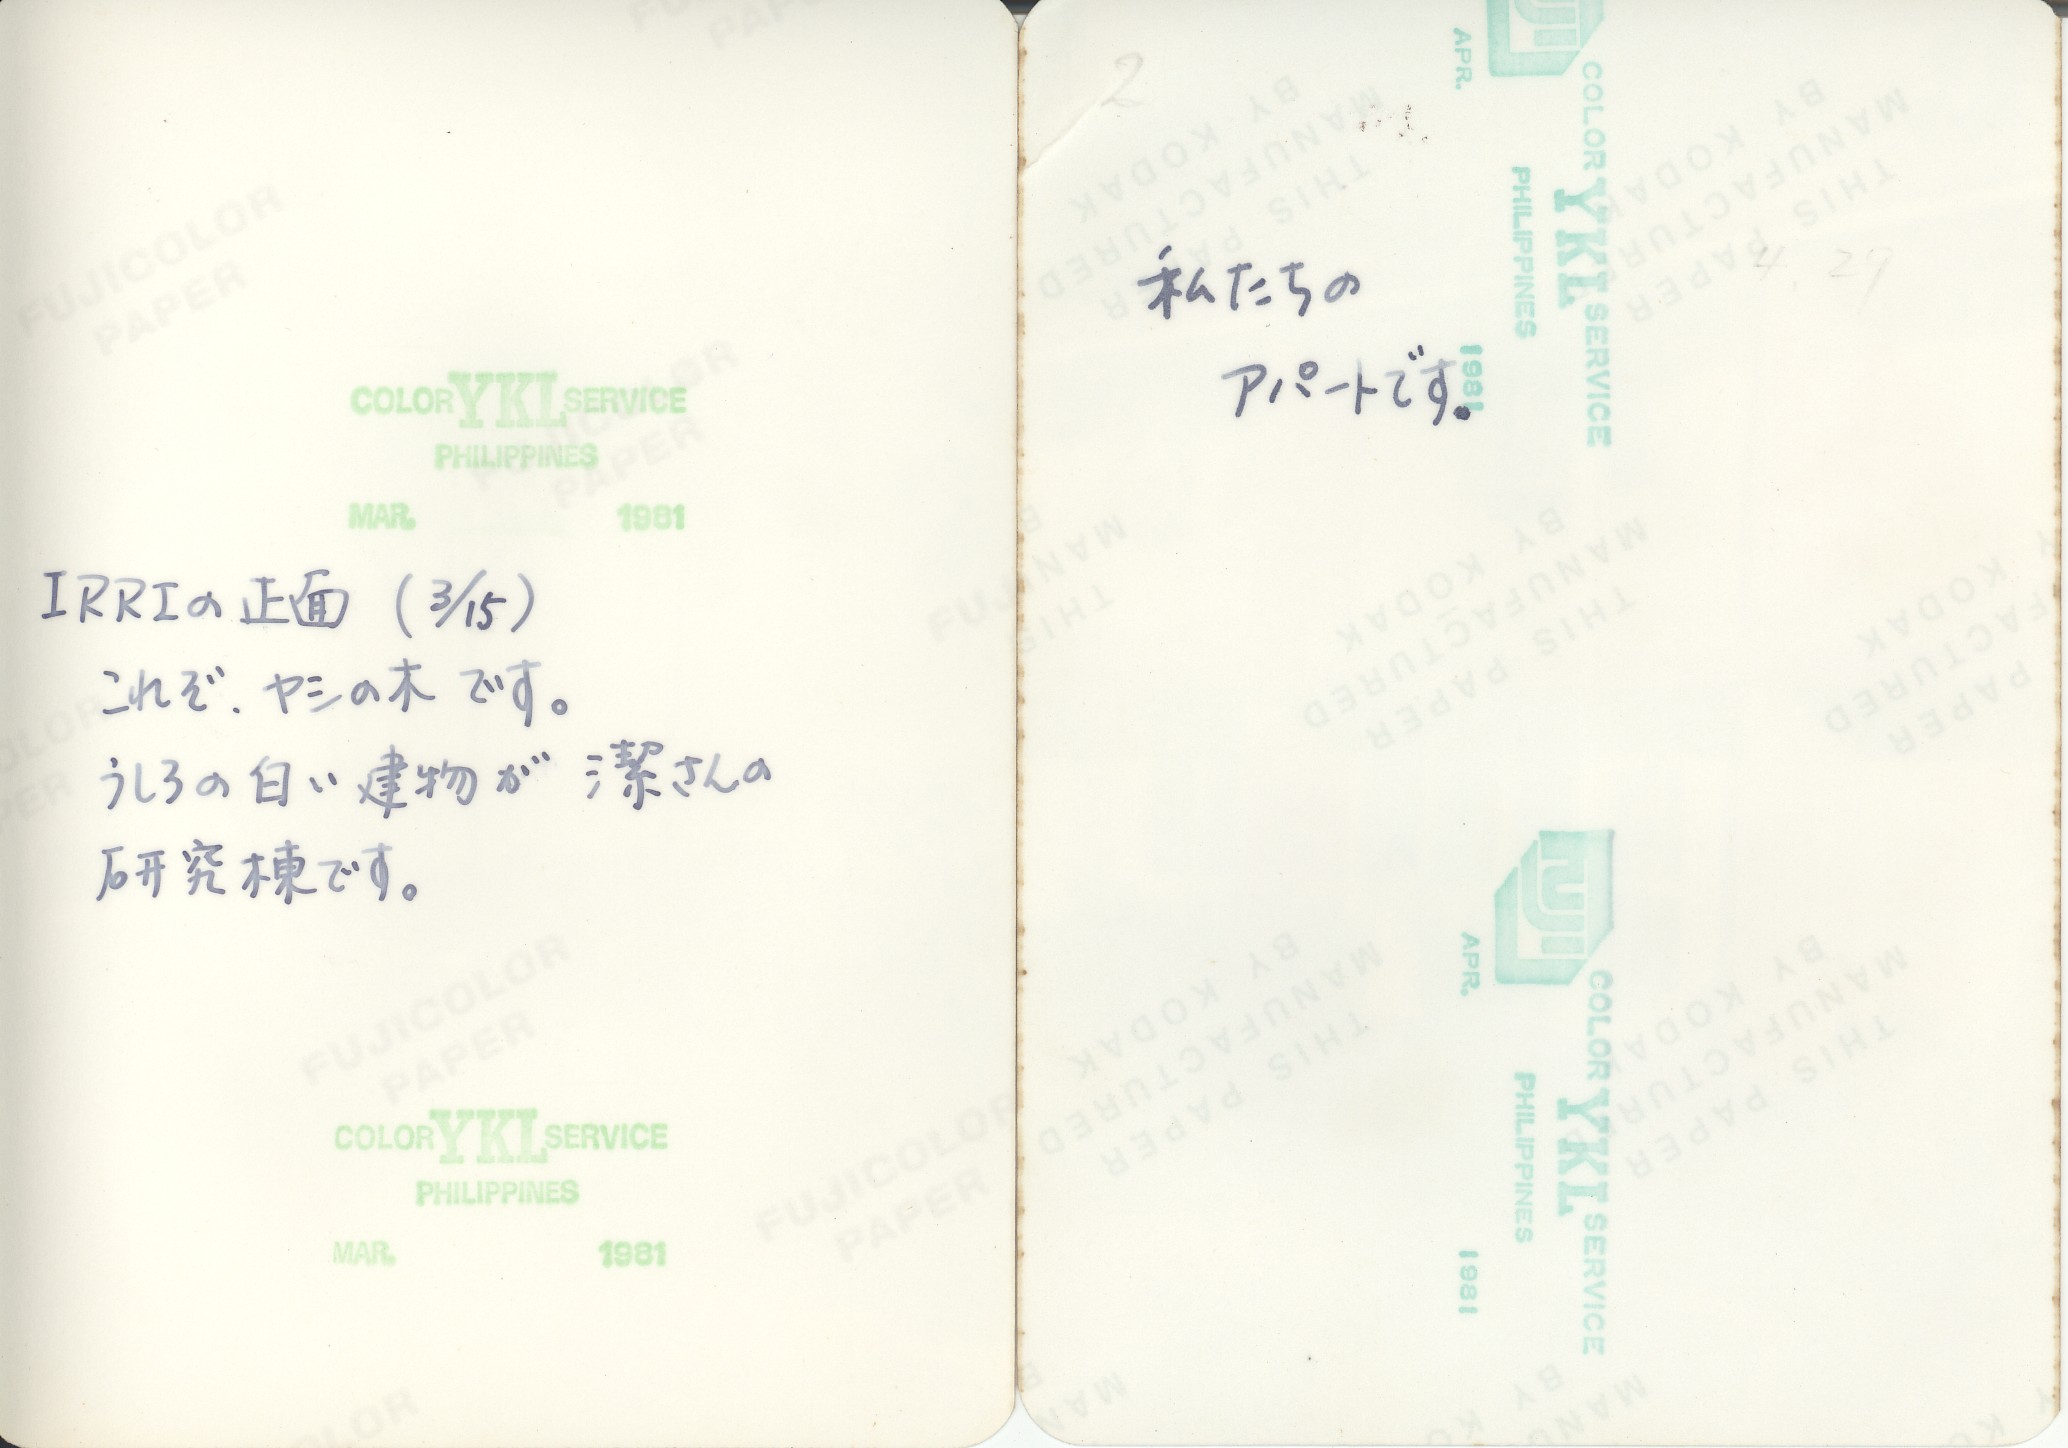 FUJICOLOR
PAPER
COLOR YKL SERVICE
PHILIPPINES
MAR. 1981
IRRIの正面 (3/15)
これぞ、ヤシの木です。
うしろの白い建物が 潔さんの
研究棟です。
FUJICOLOR
PAPER
COLOR YKL SERVICE
PHILIPPINES
MAR. 1981
FUJICOLOR
PAPER
2
私たちの
アパートです。
4. 29
FUJI
COLOR YKL SERVICE
PHILIPPINES
APR. 1981
THIS PAPER
MANUFACTURED
BY KODAK
FUJI
COLOR YKL SERVICE
PHILIPPINES
APR. 1981
THIS PAPER
MANUFACTURED
BY KODAK